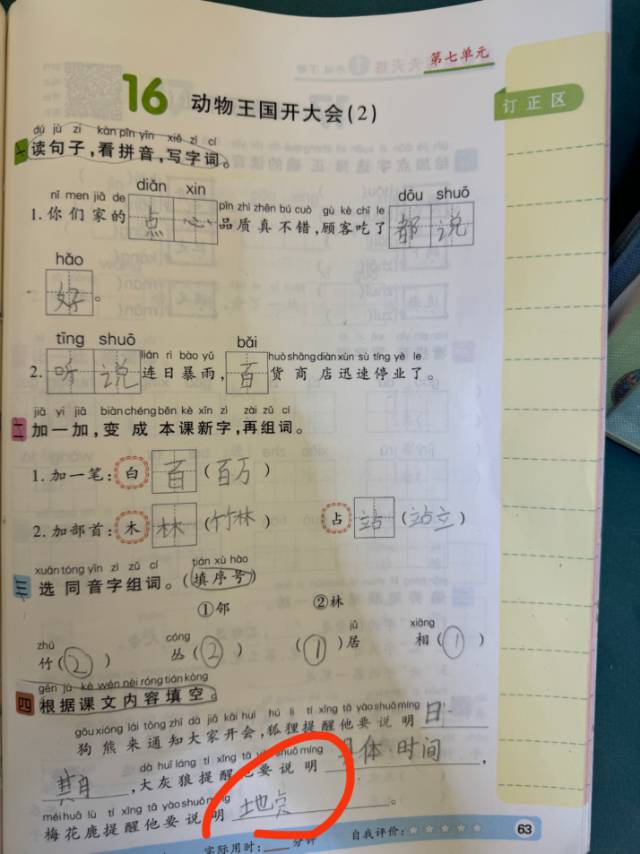 第七单元
16 动物王国开大会(2)
订正区
dú jù zi kàn pīn yīn xiě zì cí
一 读句子,看拼音,写字词。
diǎn xin dōu shuō
nǐ men jiā de pǐn zhì zhēn bú cuò gù kè chī le
1. 你们家的点心品质真不错,顾客吃了都说
hǎo
好。
tīng shuō bǎi
lián rì bào yǔ huò shāng diàn xùn sù tíng yè le
2. 听说连日暴雨,百货商店迅速停业了。
jiā yi jiā biàn chéng běn kè xīn zì zài zǔ cí
二 加一加,变成本课新字,再组词。
1. 加一笔: 白 百 (百万)
2. 加部首: 木 林 (竹林) 占 站 (站立)
xuǎn tóng yīn zì zǔ cí tián xù hào
三 选同音字组词。(填序号)
①邻 ②林
zhú cóng jū xiāng
竹(2) 丛(2) (1)居 相(1)
gēn jù kè wén nèi róng tián kòng
四 根据课文内容填空。
gǒu xióng lái tōng zhī dà jiā kāi huì hú li tí xǐng tā yào shuō míng
狗熊来通知大家开会,狐狸提醒他要说明日
dà huī láng tí xǐng tā yào shuō míng
期,大灰狼提醒他要说明具体时间,
méi huā lù tí xǐng tā yào shuō míng
梅花鹿提醒他要说明地点。
实际用时:____分钟 自我评价:★★★★★ 63